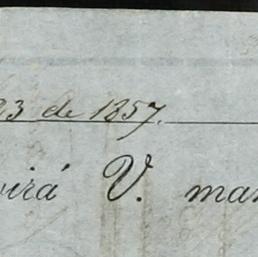 23 de 1857.
virá V. man